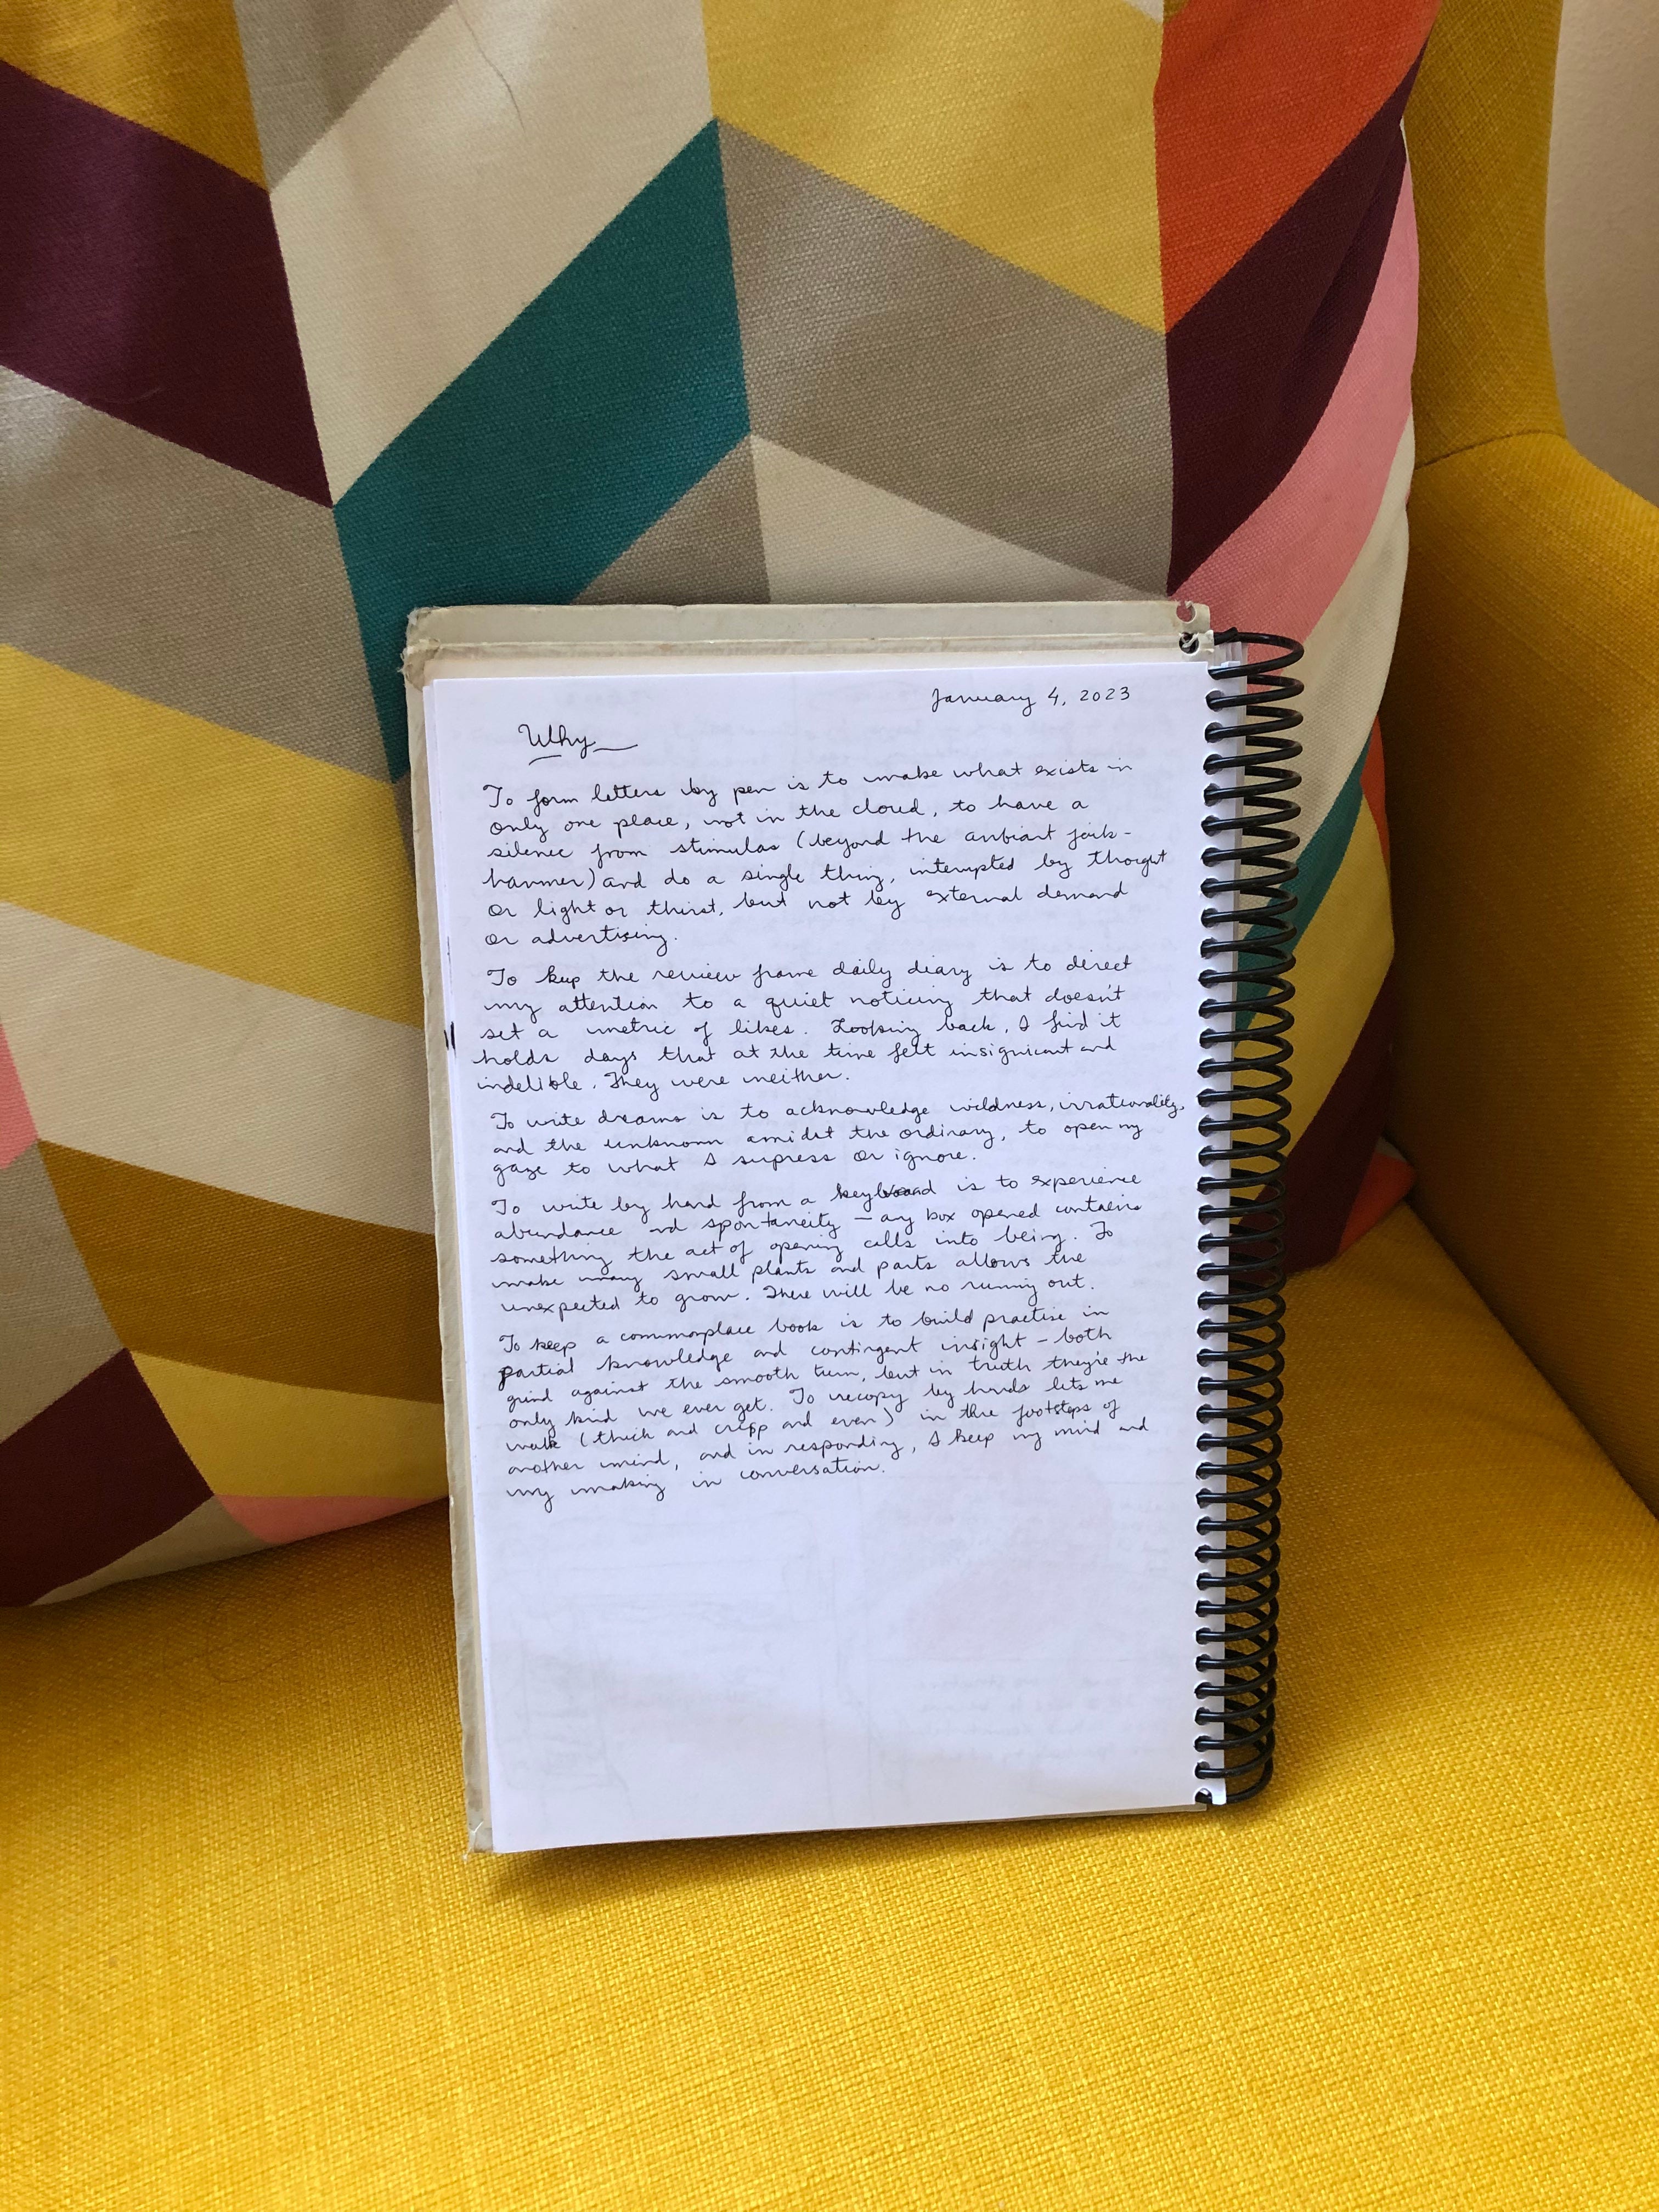 January 4, 2023
Why
To form letters by pen is to make what exists in
only one place, not in the cloud, to have a
silence from stimulas (beyond the ambiant jack-
hammer) and do a single thing, interupted by thought
or light or thirst, but not by external demand
or advertising.
To keep the review frame daily diary is to direct
my attention to a quiet noticing that doesn't
set a metric of likes. Looking back, I find it
holds days that at the time felt insignicant and
indelible. They were neither.
To write dreams is to acknowledge wildness, irrationality,
and the unknown amidst the ordinary, to open my
gaze to what I supress or ignore.
To write by hand from a keyword is to experience
abundance and spontaneity – any box opened contains
something the act of opening calls into being. To
make many small plants and parts allows the
unexpected to grow. There will be no running out.
To keep a commonplace book is to build practise in
partial knowledge and contingent insight – both
grind against the smooth turn, but in truth they're the
only kind we ever get. To recopy by hands lets me
walk (thick and crisp and even) in the footsteps of
another mind, and in responding, I keep my mind and
my making in conversation.